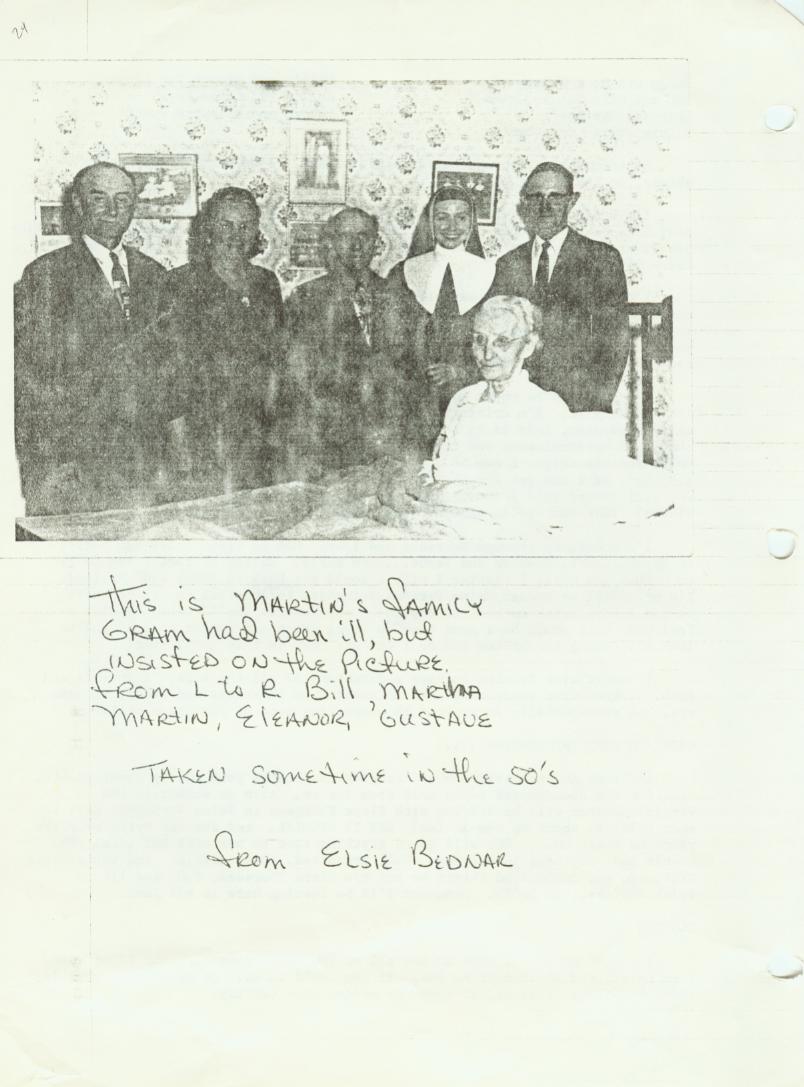 24
This is MARtiN's fAMiLY
GRAM had been ill, but
iNSiSTED ON the PictuRE.
from L to R Bill, MARthA
MARTiN, ElEANOR, GUSTAVE
TAKEN SomEtimE iN the 50's
from ELSiE BEDNAR